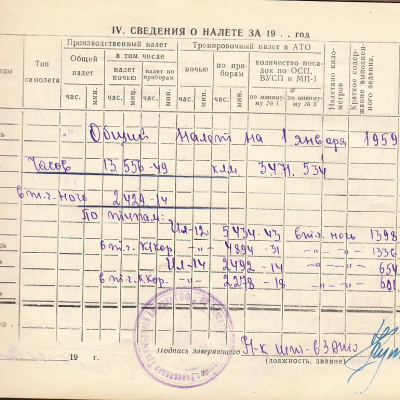 IV. СВЕДЕНИЯ О НАЛЕТЕ ЗА 19 . . год
Тип самолета
Производственный налет
Общий налет
в том числе
налет ночью
налет по приборам
Тренировочный налет в АТО
ночью
по приборам
количество посадок по ОСП, ВУСП и МП-1
по минимуму № 1
по минимуму № 2
Налетано километров
Краткое содержание выполненного задания
час. мин. час. мин. час. мин. час. мин. час. мин.
Общий налет на 1 января 1959
Часов 13.556-49 клм. 3471.534
в т.ч. ночь 2429-14
По типам:
Ил-12 5434-43 в т.ч. ночь 1398
в т.ч. К/Кор. -"- 4894-31 -"- -"- 1336
Ил-14 2492-14 -"- -"- 654
в т.ч. К.Кор. -"- 2278-18 -"- -"- 601
19 г.
Подпись заверяющего Н-к шт-
(должность, звание)